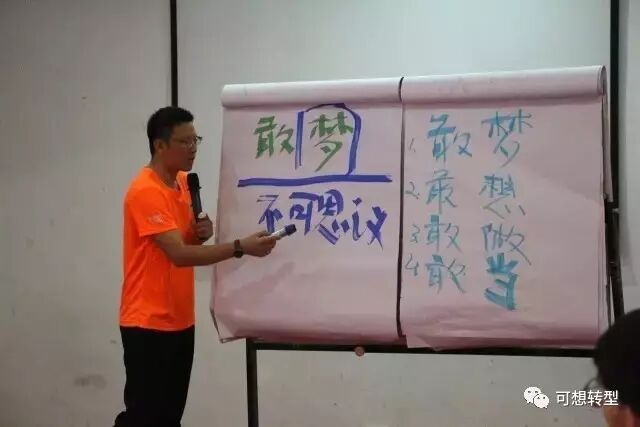 敢梦
不可思议
1. 敢梦
2. 敢想
3. 敢做
4. 敢当
可想转型